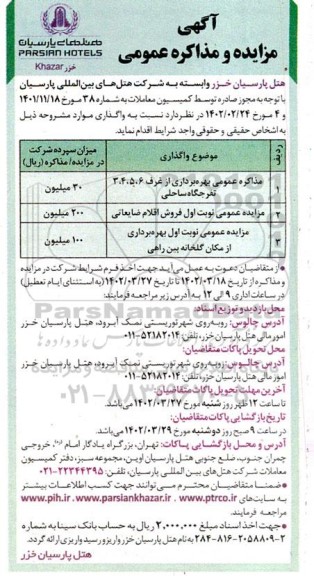 آگهی
مزایده و مذاکره عمومی
هتلهای پارسیان
PARSIAN HOTELS
خزر Khazar
هتل پارسیان خزر وابسته به شرکت هتل‌های بین‌المللی پارسیان
با توجه به مجوز صادره توسط کمیسیون معاملات به شماره ۳۸ مورخ ۱۴۰۱/۱۱/۱۸
و ۴ مورخ ۱۴۰۲/۰۲/۲۴ در نظر دارد نسبت به واگذاری موارد مشروحه ذیل
به اشخاص حقیقی و حقوقی واجد شرایط اقدام نماید.
ردیف موضوع واگذاری میزان سپرده شرکت در مزایده/ مذاکره (ریال)
۱ مذاکره عمومی بهره‌برداری از غرف ۳،۴،۵،۶ تفرجگاه ساحلی ۳۰ میلیون
۲ مزایده عمومی نوبت اول فروش اقلام ضایعاتی ۲۰۰ میلیون
۳ مزایده عمومی نوبت اول بهره‌برداری از مکان گلخانه بین راهی ۱۰۰ میلیون
از متقاضیان دعوت به عمل می‌آید جهت اخذ فرم شرایط شرکت در مزایده
و مذاکره از تاریخ ۱۴۰۲/۰۳/۱۸ تا تاریخ ۱۴۰۲/۰۳/۲۷ (به استثنای ایام تعطیل)
در ساعات اداری ۹ الی ۱۲ به آدرس زیر مراجعه فرمایند:
محل بازدید و توزیع اسناد:
آدرس چالوس: روبه‌روی شهر توریستی نمک آبرود، هتل پارسیان خزر
امور مالی هتل پارسیان خزر، تلفن: ۵۲۱۸۲۰۱۴-۰۱۱
محل تحویل پاکات متقاضیان:
آدرس چالوس: روبه‌روی شهر توریستی نمک آبرود، هتل پارسیان خزر
امور مالی هتل پارسیان خزر، تلفن: ۵۲۱۸۲۰۱۴-۰۱۱
آخرین مهلت تحویل پاکات متقاضیان:
تا ساعت ۱۲ ظهر روز شنبه مورخ ۱۴۰۲/۰۳/۲۷ می‌باشد.
تاریخ بازگشایی پاکات متقاضیان:
در ساعت ۹ صبح روز دوشنبه مورخ ۱۴۰۲/۰۳/۲۹ می‌باشد.
آدرس و محل بازگشایی پاکات: تهران، بزرگراه یادگار امام (ره)، خروجی
چمران جنوب، ضلع جنوبی هتل پارسیان اوین، مجموعه سبز، دفتر کمیسیون
معاملات شرکت هتل‌های بین‌المللی پارسیان، تلفن: ۲۲۳۴۴۳۹۵-۰۲۱
ضمناً متقاضیان محترم می‌توانند جهت کسب اطلاعات بیشتر
به سایت‌های www.ptrco.ir ، www.parsiankhazar.ir ، www.pih.ir
مراجعه فرمایند.
جهت اخذ اسناد مبلغ ۲,۰۰۰,۰۰۰ ریال به حساب بانک سینا به شماره
۲-۲۰۵۸۸۰۹-۸۱۶-۲۸۴ به نام هتل پارسیان خزر واریز و رسید واریزی ارائه گردد.
هتل پارسیان خزر